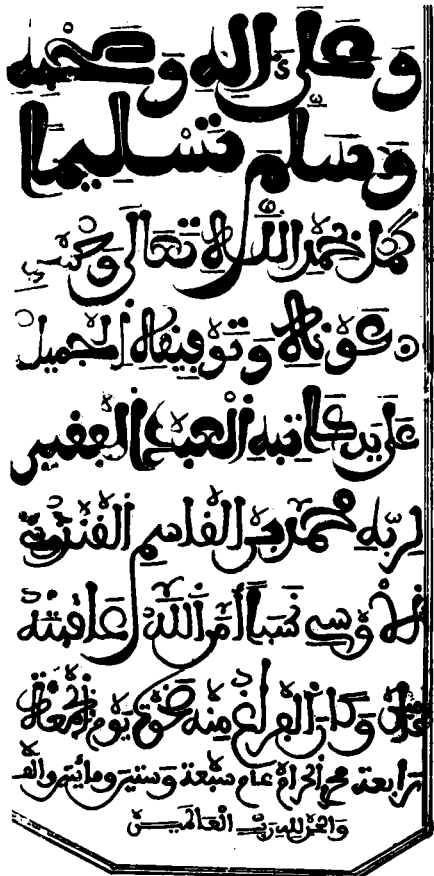 وعلى ءاله وصحبه
وسلم تسليما
كمل بحمد الله تعالى وحسن
عونه وتوفيقه الجميل
على يد كاتبه العبد الفقير
لربه محمد بن القاسم
نسبا أمن الله عاقبته
ءامين وكان الفراغ منه ضحوة يوم الجمعة
رابعة محرم الحرام عام سبعة وستين ومائتين والف
والحمد لله رب العالمين